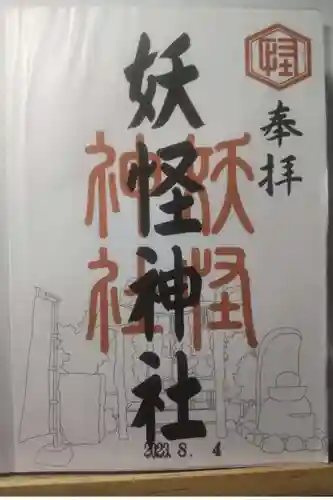 怪
奉拝
妖怪神社
妖怪
神社
2023. 8. 4